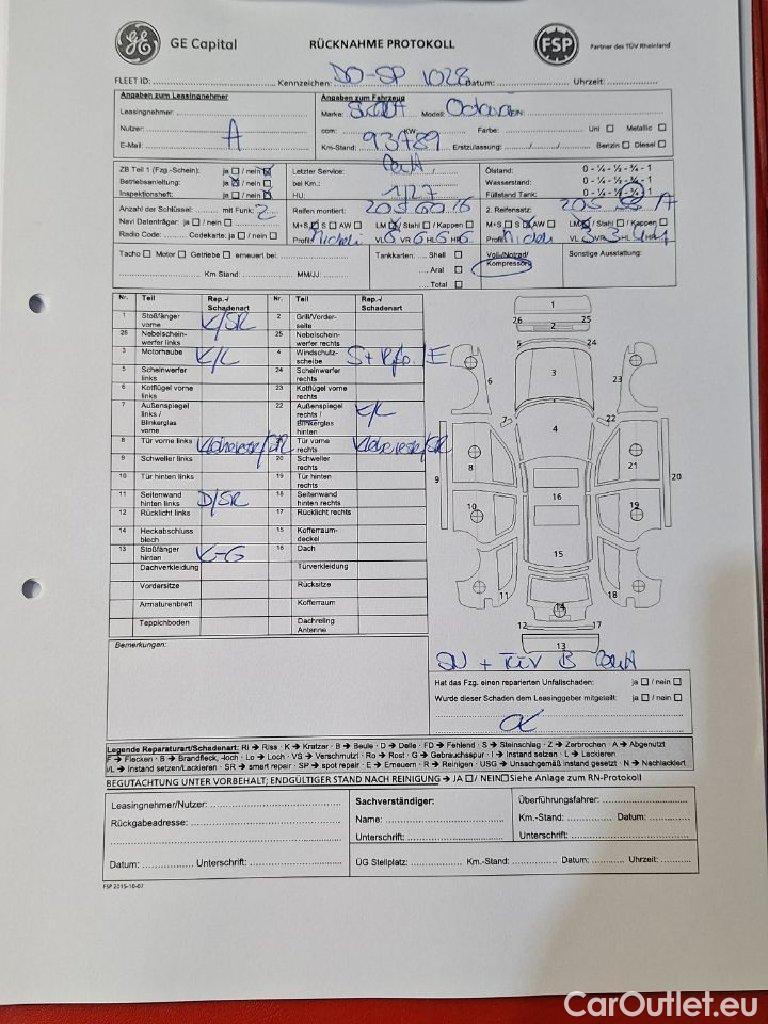 GE Capital RÜCKNAHME PROTOKOLL FSP Partner des TÜV Rheinland
FLEET ID: Kennzeichen: DO-SP 1028 Datum: Uhrzeit:
Angaben zum Leasingnehmer Angaben zum Fahrzeug
Leasingnehmer: Marke: Modell: Octavia
Nutzer: A ccm: KW Farbe: Uni Metallic
E-Mail: Km-Stand: 93789 Erstzulassung: Benzin Diesel
ZB Teil 1 (Fzg.-Schein): ja / nein Letzter Service: Ölstand: 0 - ¼ - ½ - ¾ - 1
Betriebsanleitung: ja / nein bei Km.: Wasserstand: 0 - ¼ - ½ - ¾ - 1
Inspektionsheft: ja / nein HU: 1/27 Füllstand Tank: 0 - ¼ - ½ - ¾ - 1
Anzahl der Schlüssel: mit Funk: 2 Reifen montiert: 205 60 16 2. Reifensatz: 205
Navi Datenträger: ja / nein M+S S AW LM / Stahl / Kappen M+S S AW LM / Stahl / Kappen
Radio Code: Codekarte: ja / nein Profil: VL 6 VR 6 HL 6 HR 6 Profil: VL VR HL
Tacho Motor Getriebe erneuert bei: Tankkarten: Shell Voll/Notrad/ Sonstige Ausstattung:
Aral Kompressor
Km Stand MM/JJ Total
Nr. Teil Rep.-/ Schadenart Nr. Teil Rep.-/ Schadenart
1 Stoßfänger vorne K/SR 2 Grill/Vorder- seite
26 Nebelschein- werfer links 25 Nebelschein- werfer rechts
3 Motorhaube K/L 4 Windschutz- scheibe /E
5 Scheinwerfer links 24 Scheinwerfer rechts
6 Kotflügel vorne links 23 Kotflügel vorne rechts
7 Außenspiegel links / Blinkerglas vorne 22 Außenspiegel rechts / Blinkerglas hinten K/L
8 Tür vorne links /SR 21 Tür vorne rechts /SR
9 Schweller links 20 Schweller rechts
10 Tür hinten links 19 Tür hinten rechts
11 Seitenwand hinten links D/SR 18 Seitenwand hinten rechts
12 Rücklicht links 17 Rücklicht rechts
14 Heckabschluss blech 15 Kofferraum- deckel
13 Stoßfänger hinten K-G 16 Dach
Dachverkleidung Türverkleidung
Vordersitze Rücksitze
Armaturenbrett Kofferraum
Teppichboden Dachreling Antenne
1
26 25
2
5 24
6 3 23
7 22
4
8 21
9 20
10 16 19
15
11 18
14
12 17
13
Bemerkungen:
+ TÜV
Hat das Fzg. einen reparierten Unfallschaden: ja / nein
Wurde dieser Schaden dem Leasinggeber mitgeteilt: ja / nein
Legende Reparaturart/Schadenart: RI → Riss · K → Kratzer · B → Beule · D → Delle · FD → Fehlend · S → Steinschlag · Z → Zerbrochen · A → Abgenutzt
F → Flecken · B → Brandfleck, -loch · Lo → Loch · VS → Verschmutzt · Ro → Rost · G → Gebrauchsspur · I → Instand setzen · L → Lackieren
I/L → Instand setzen/Lackieren · SR → smart repair · SP → spot repair · E → Erneuern · R → Reinigen · USG → Unsachgemäß instand gesetzt · N → Nachlackiert
BEGUTACHTUNG UNTER VORBEHALT; ENDGÜLTIGER STAND NACH REINIGUNG → JA / NEIN Siehe Anlage zum RN-Protokoll
Leasingnehmer/Nutzer: Sachverständiger: Überführungsfahrer:
Rückgabeadresse: Name: Km.-Stand: Datum:
Unterschrift: Unterschrift:
Datum: Unterschrift: ÜG Stellplatz: Km.-Stand: Datum: Uhrzeit:
FSP 2015-10-07
CarOutlet.eu